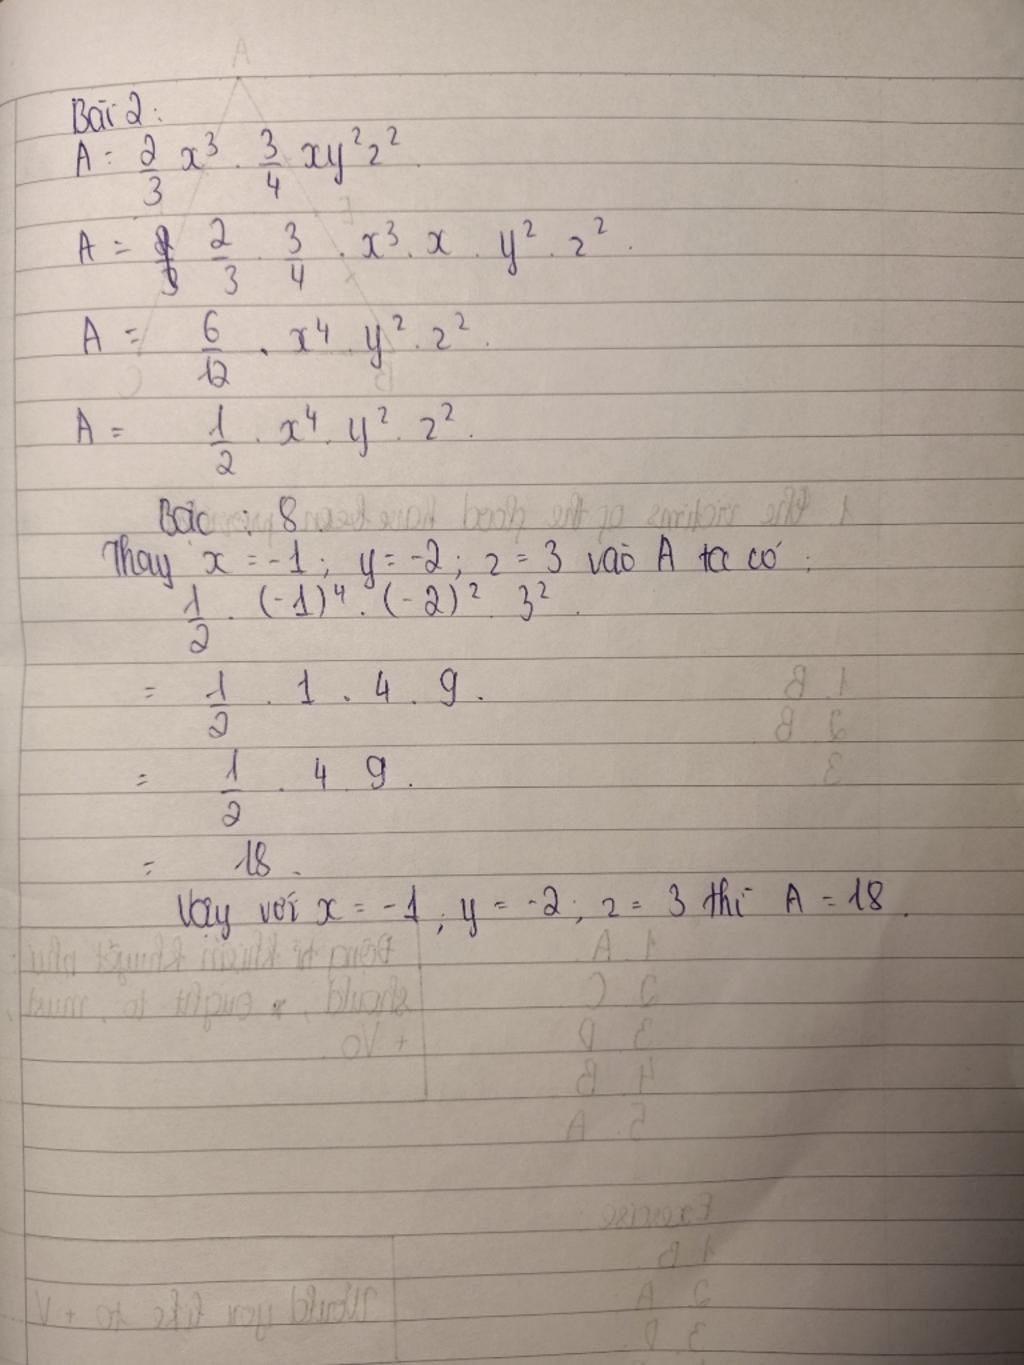 Bài 2:
A = 2/3 x³ . 3/4 xy²z².
A = 2/3 . 3/4 . x³ . x . y² . z².
A = 6/12 . x⁴ . y² . z².
A = 1/2 . x⁴ . y² . z².
Bậc : 8
Thay x = -1 ; y = -2 ; z = 3 vào A ta có :
1/2 . (-1)⁴ . (-2)² . 3².
= 1/2 . 1 . 4 . 9.
= 1/2 . 4 . 9.
= 18.
Vậy với x = -1 ; y = -2 ; z = 3 thì A = 18.